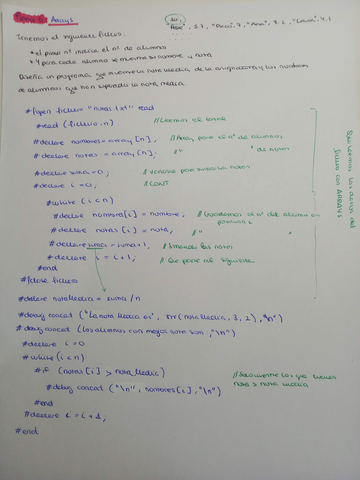 Arrays
Tenemos el siguiente fichero:
* el primer nº indica el nº de alumnos
* Y para cada alumno se muestra su nombre y nota
Diseña un programa que muestre la nota media de la asignatura y los nombres
de alumnos que han superado la nota media.
#fopen fichero "notas.txt" read
#read (fichero, n) //Leemos el
#declare nombres = array[n]; //Array para el nº de alumnos
#declare notas = array[n]; // " " de notas
#declare suma = 0; //Variable para sumar las notas
#declare i = 0; //CONT
#while (i < n)
#declare nombres[i] = nombre; //Guardamos el nº del alumno en posición i
#declare notas[i] = nota; // "
#declare suma = suma + 1; //Sumamos las notas
#declare i = i + 1; //Que pase al siguiente
#end
#fclose fichero
#declare notaMedia = suma / n
#debug concat ("La nota media es", str(notaMedia, 3, 2), "\n")
#debug concat (Los alumnos con mejor nota son, "\n")
#declare i = 0
#while (i < n)
#if (notas[i] > notaMedia) //Solo muestre los que tienen nota > nota media
#debug concat ("\n", nombres[i], "\n")
#end
#declare i = i + 1;
#end
con ARRAYS